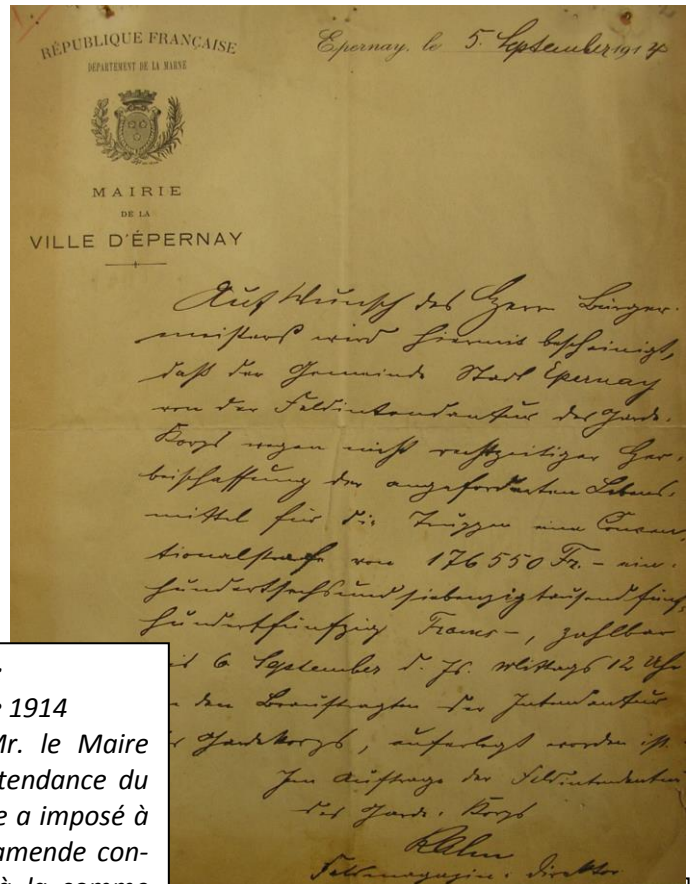 RÉPUBLIQUE FRANÇAISE
DÉPARTEMENT DE LA MARNE
MAIRIE
DE LA
VILLE D'ÉPERNAY
Epernay, le 5. September 1914
Auf Wunsch des Herrn Bürger-
meisters wird hiermit bescheinigt,
daß der Gemeinde Stadt Epernay
von der Feldintendantur des Garde-
Korps wegen nicht rechtzeitiger Her-
beischaffung der angeforderten Lebens-
mittel für die Truppen eine Conven-
tionalstrafe von 176550 Fr. - ein-
hundertsechsundsiebenzigtausendfünf-
hundertfünfzig Francs -, zahlbar
6 September d. Js. Mittags 12 Uhr
den Beauftragten der Intendantur
Gardekorps, auferlegt worden ist.
Im Auftrage der Feldintendantur
des Garde-Korps
Feldmagazin-Direktor
1914
Mr. le Maire
tendance du
e a imposé à
amende con-
à la somme